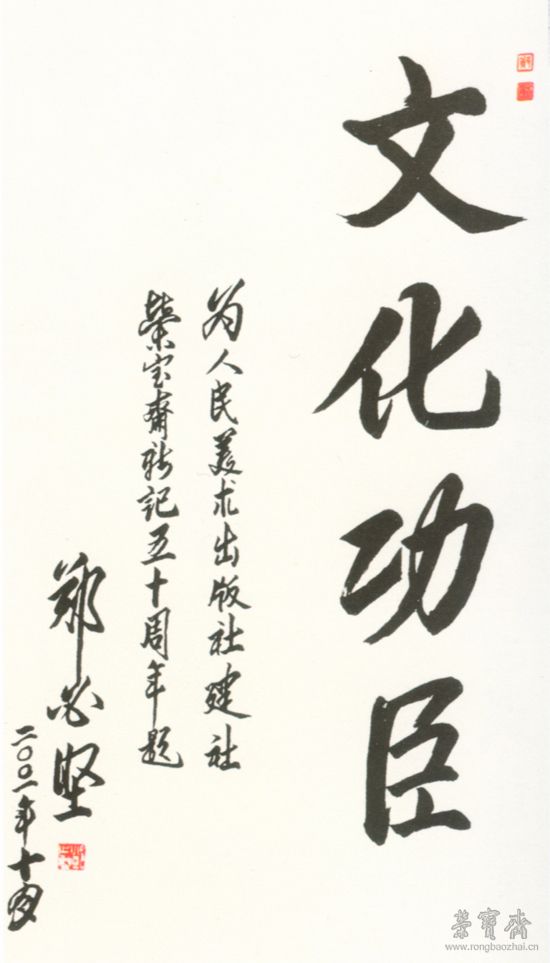 文化功臣
为人民美术出版社建社
荣宝斋新记五十周年题
郑必坚
二〇〇一年十月
榮寳齋
www.rongbaozhai.cn